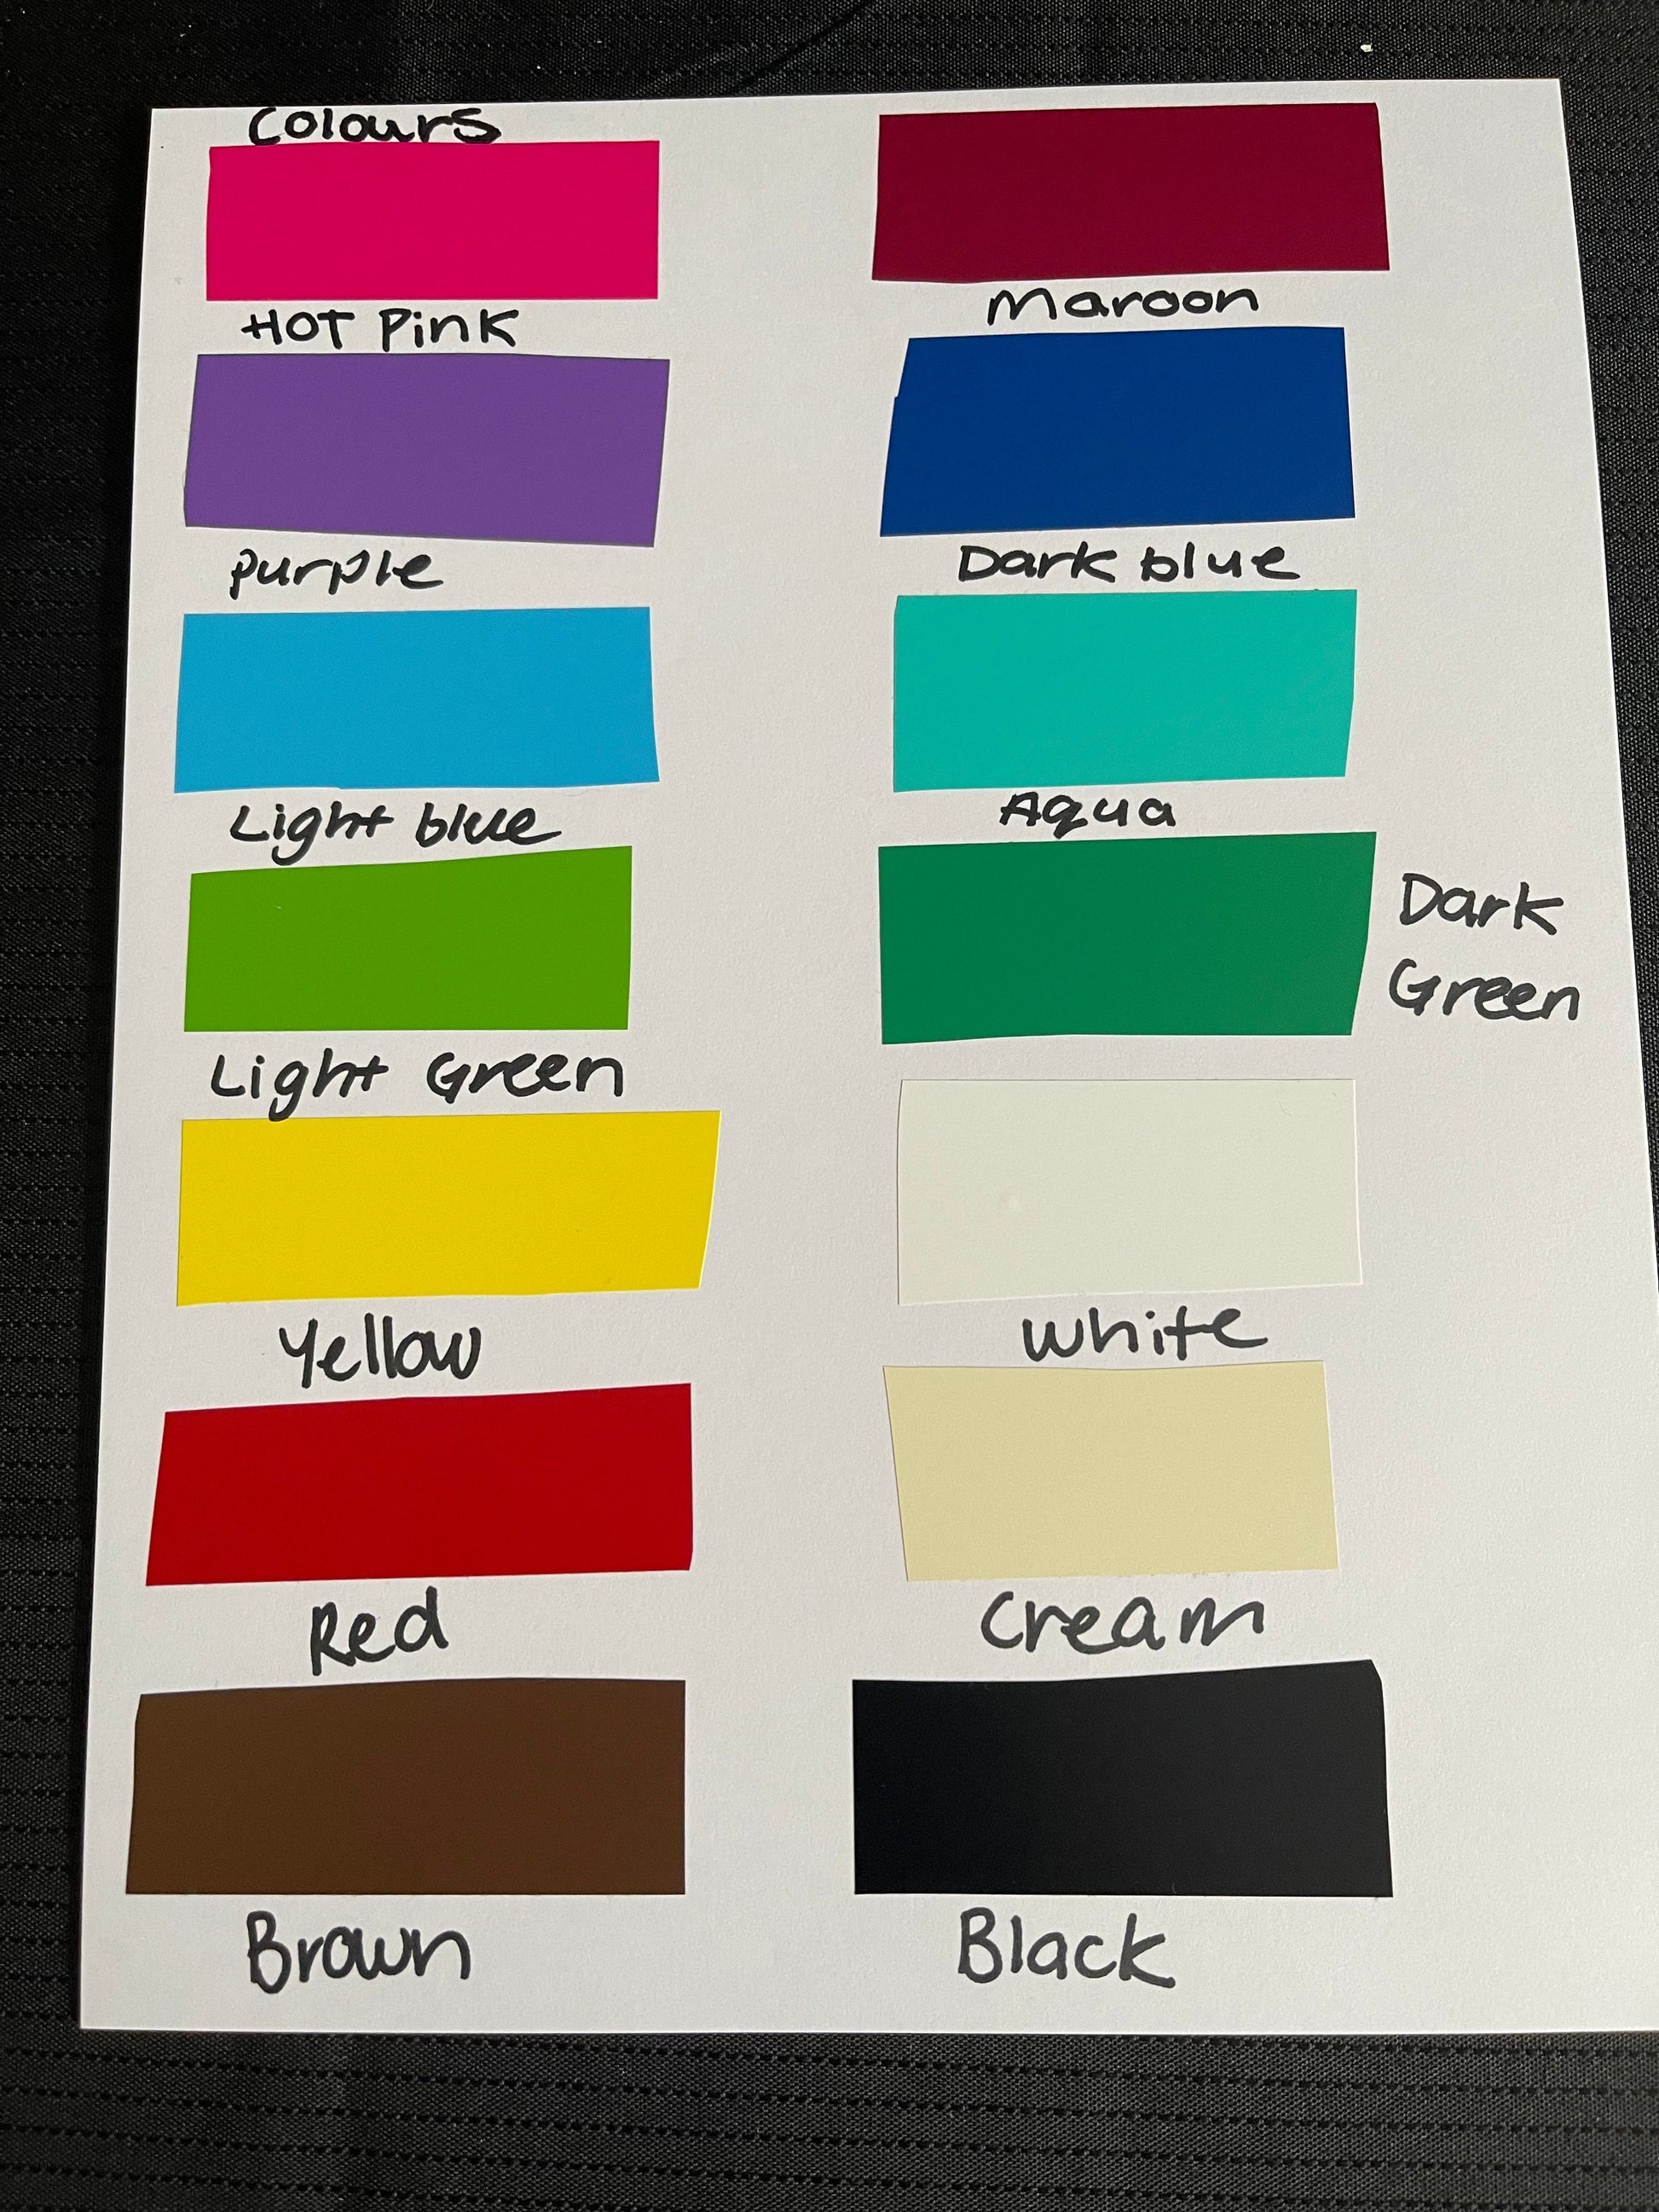 Colours
HOT Pink
Purple
Light blue
Light Green
Yellow
Red
Brown
Maroon
Dark blue
Aqua
Dark
Green
White
Cream
Black